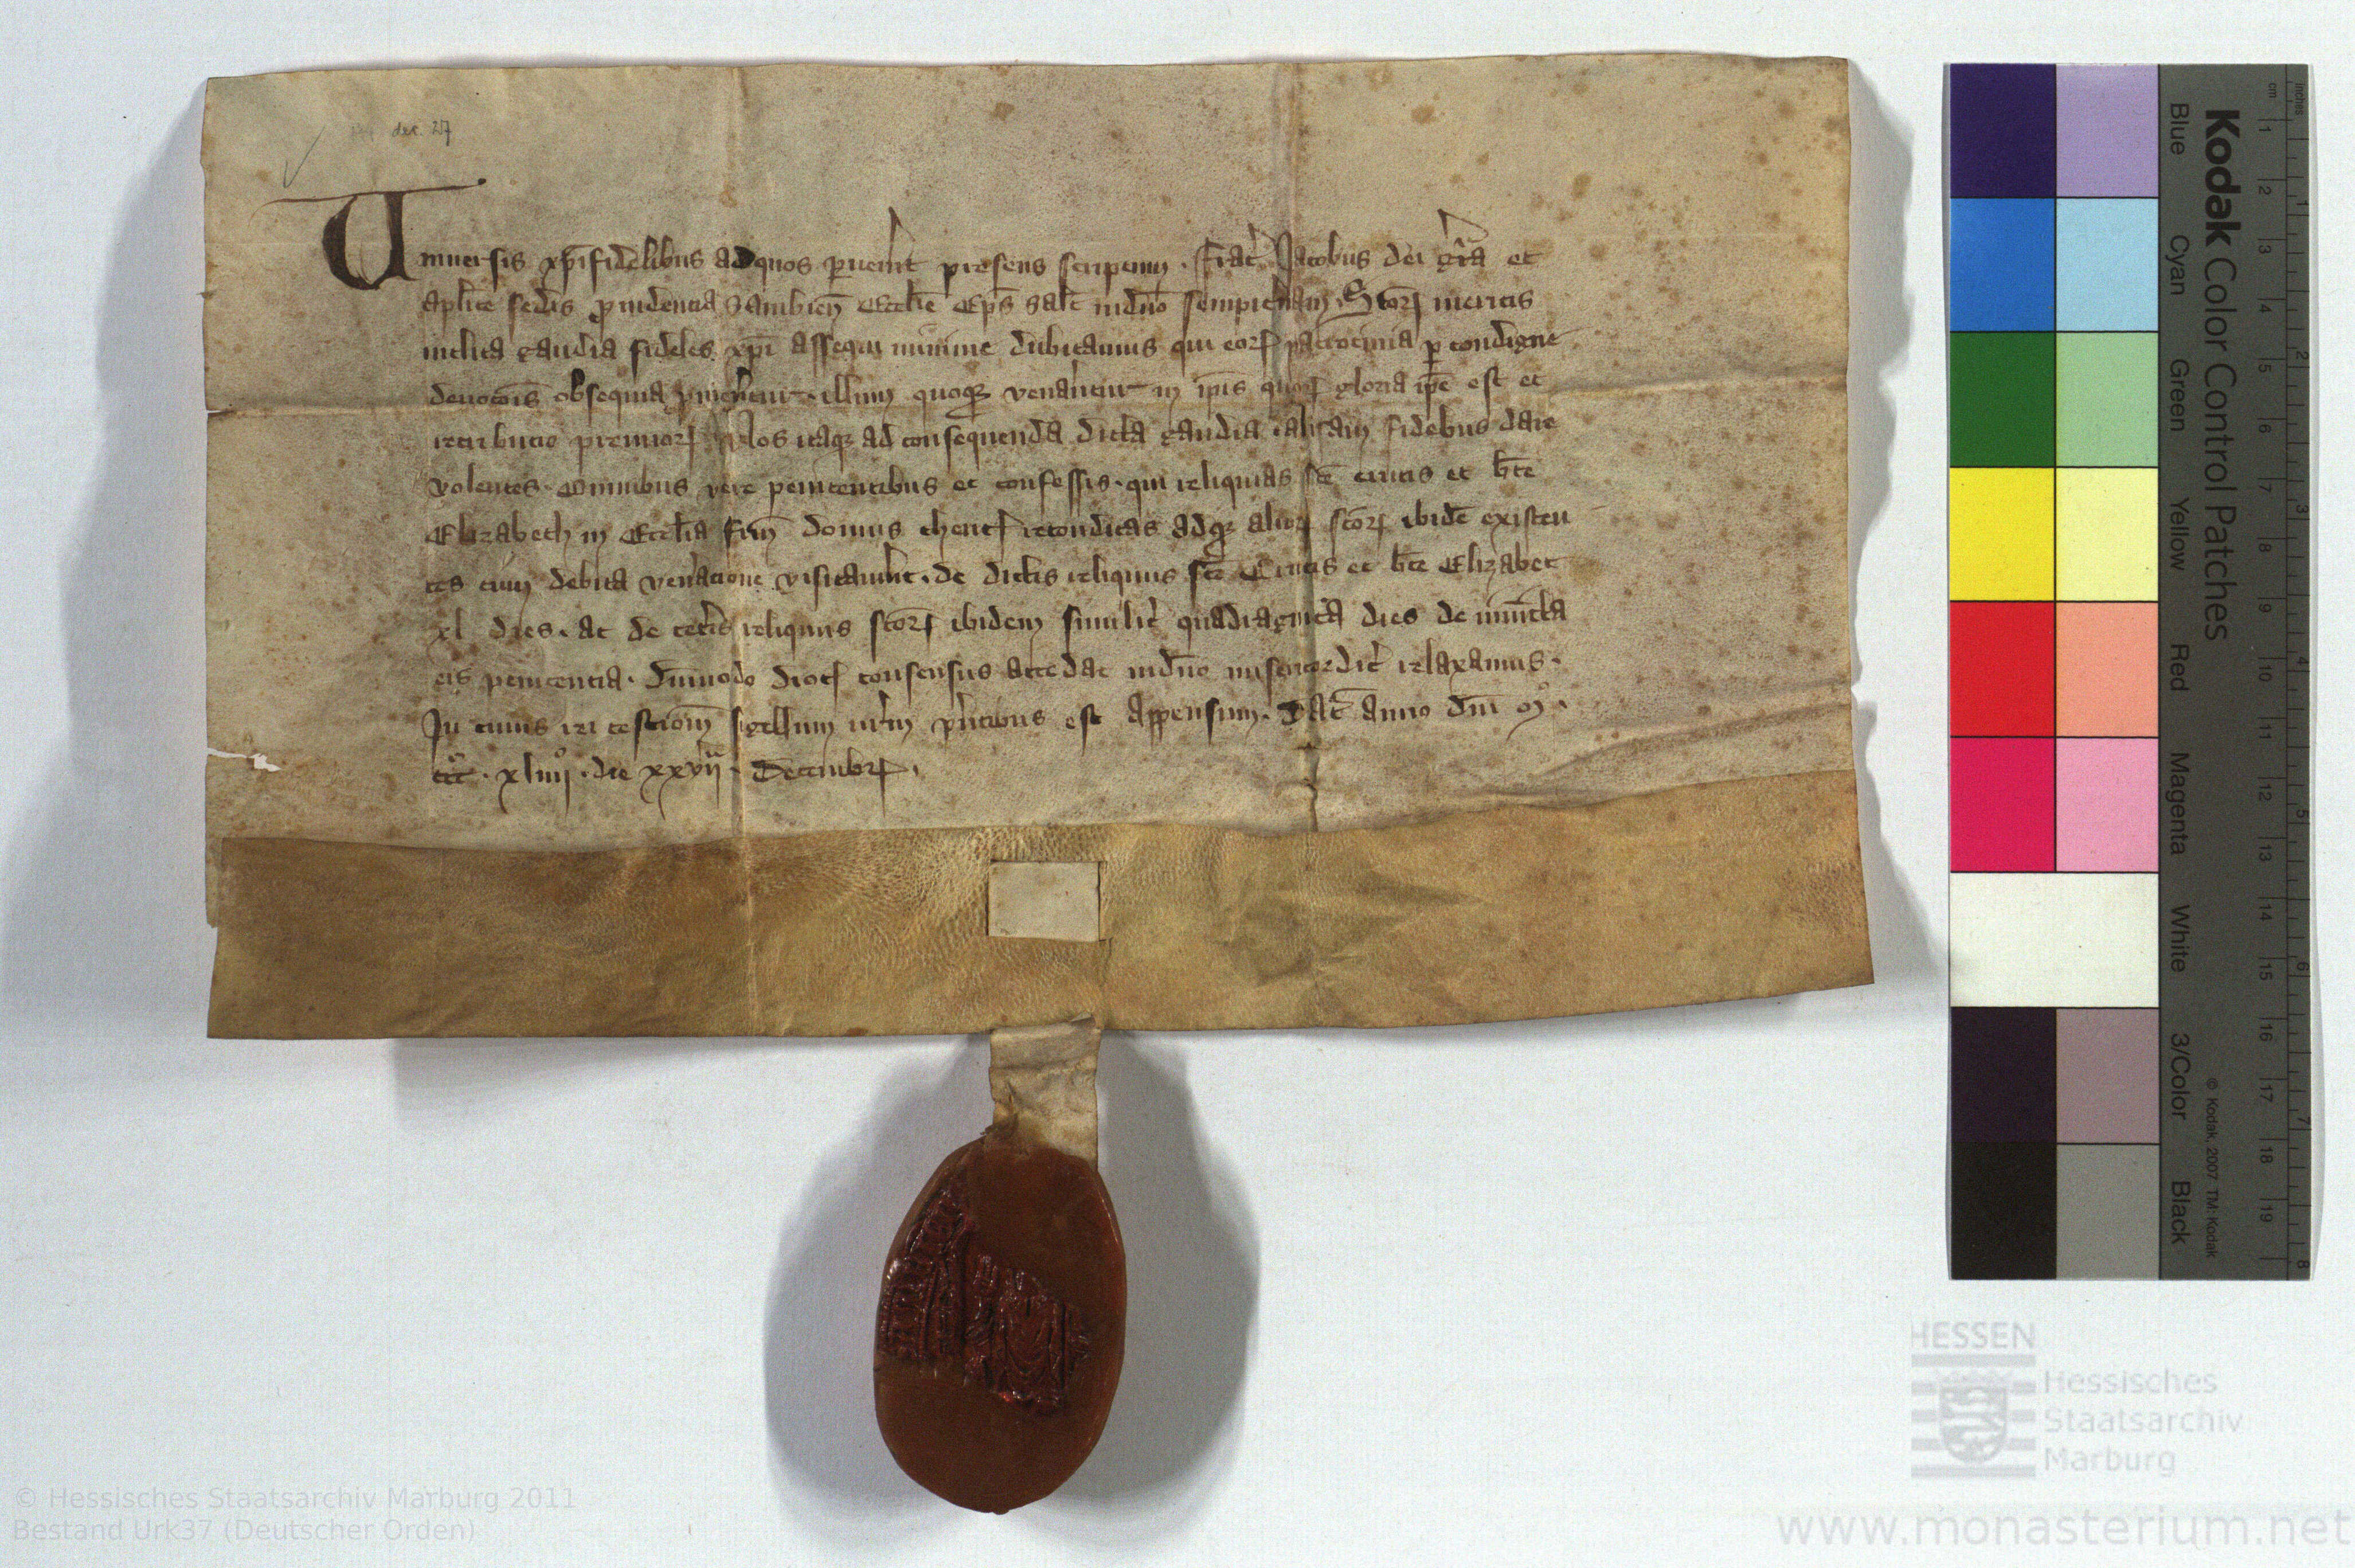 dec. 27
Uniuersis xp̄ifidelibus ad quos ꝑuen̄it presens scriptum . Frat̉ Jacobus dei gr̄a et
aplice sedis ꝓuidencia Sambien̄ Ecclīe Ep̄s salt̄ in dn̄o sempit̉nam . Sc̄orꝝ meritis
inclita gaudia fideles xp̄i assequi minime dubitamus qui eorꝝ patrocinia ꝑ condigne
deuoc̄ois obsequia ꝓmer̉entur . illum quoqꝫ ven̉antur in ip̄is quorꝝ gloria ip̄e est et
retribucio premiorꝝ Nos itaqꝫ ad consequenda dicta gaudia . alicam fidebus dare
volentes . Omnibus vere penitentibus et confessis . qui reliquias sc̄e crucis et b̄te
Elizabeth in Ecclīa frm̄ domus theutꝭ reconditas adqꝫ aliorꝝ sc̄orꝝ ibidē existen
tes cum debita ven̉acione visitauer̉it . de dictis reliquiis sc̄e Crucis et b̄te Elizabet
xl dies . at de cet̉is reliquiis sc̄orꝝ ibidem similit̉ quadraginta dies de iniūcta
eis penitencia . dūmodo dioc̄ꝭ consensus accedat in dn̄o misericordit̉ relaxamus .
In cuius rei testiom̄ sigillum nr̄m pn̄tibus est appensum . Dat̄ anno dn̄i mͦ .
cccͦ . xliiijͦ . die xxvij . Decembrꝭ .
Kodak Color Control Patches
Blue Cyan Green Yellow Red Magenta White 3/Color Black
© Kodak, 2007 TM: Kodak
cm 1 2 3 4 5 6 7 8 9 10 11 12 13 14 15 16 17 18 19
inches 1 2 3 4 5 6 7 8
HESSEN
Hessisches
Staatsarchiv
Marburg
© Hessisches Staatsarchiv Marburg 2011
Bestand Urk37 (Deutscher Orden)
www.monasterium.net